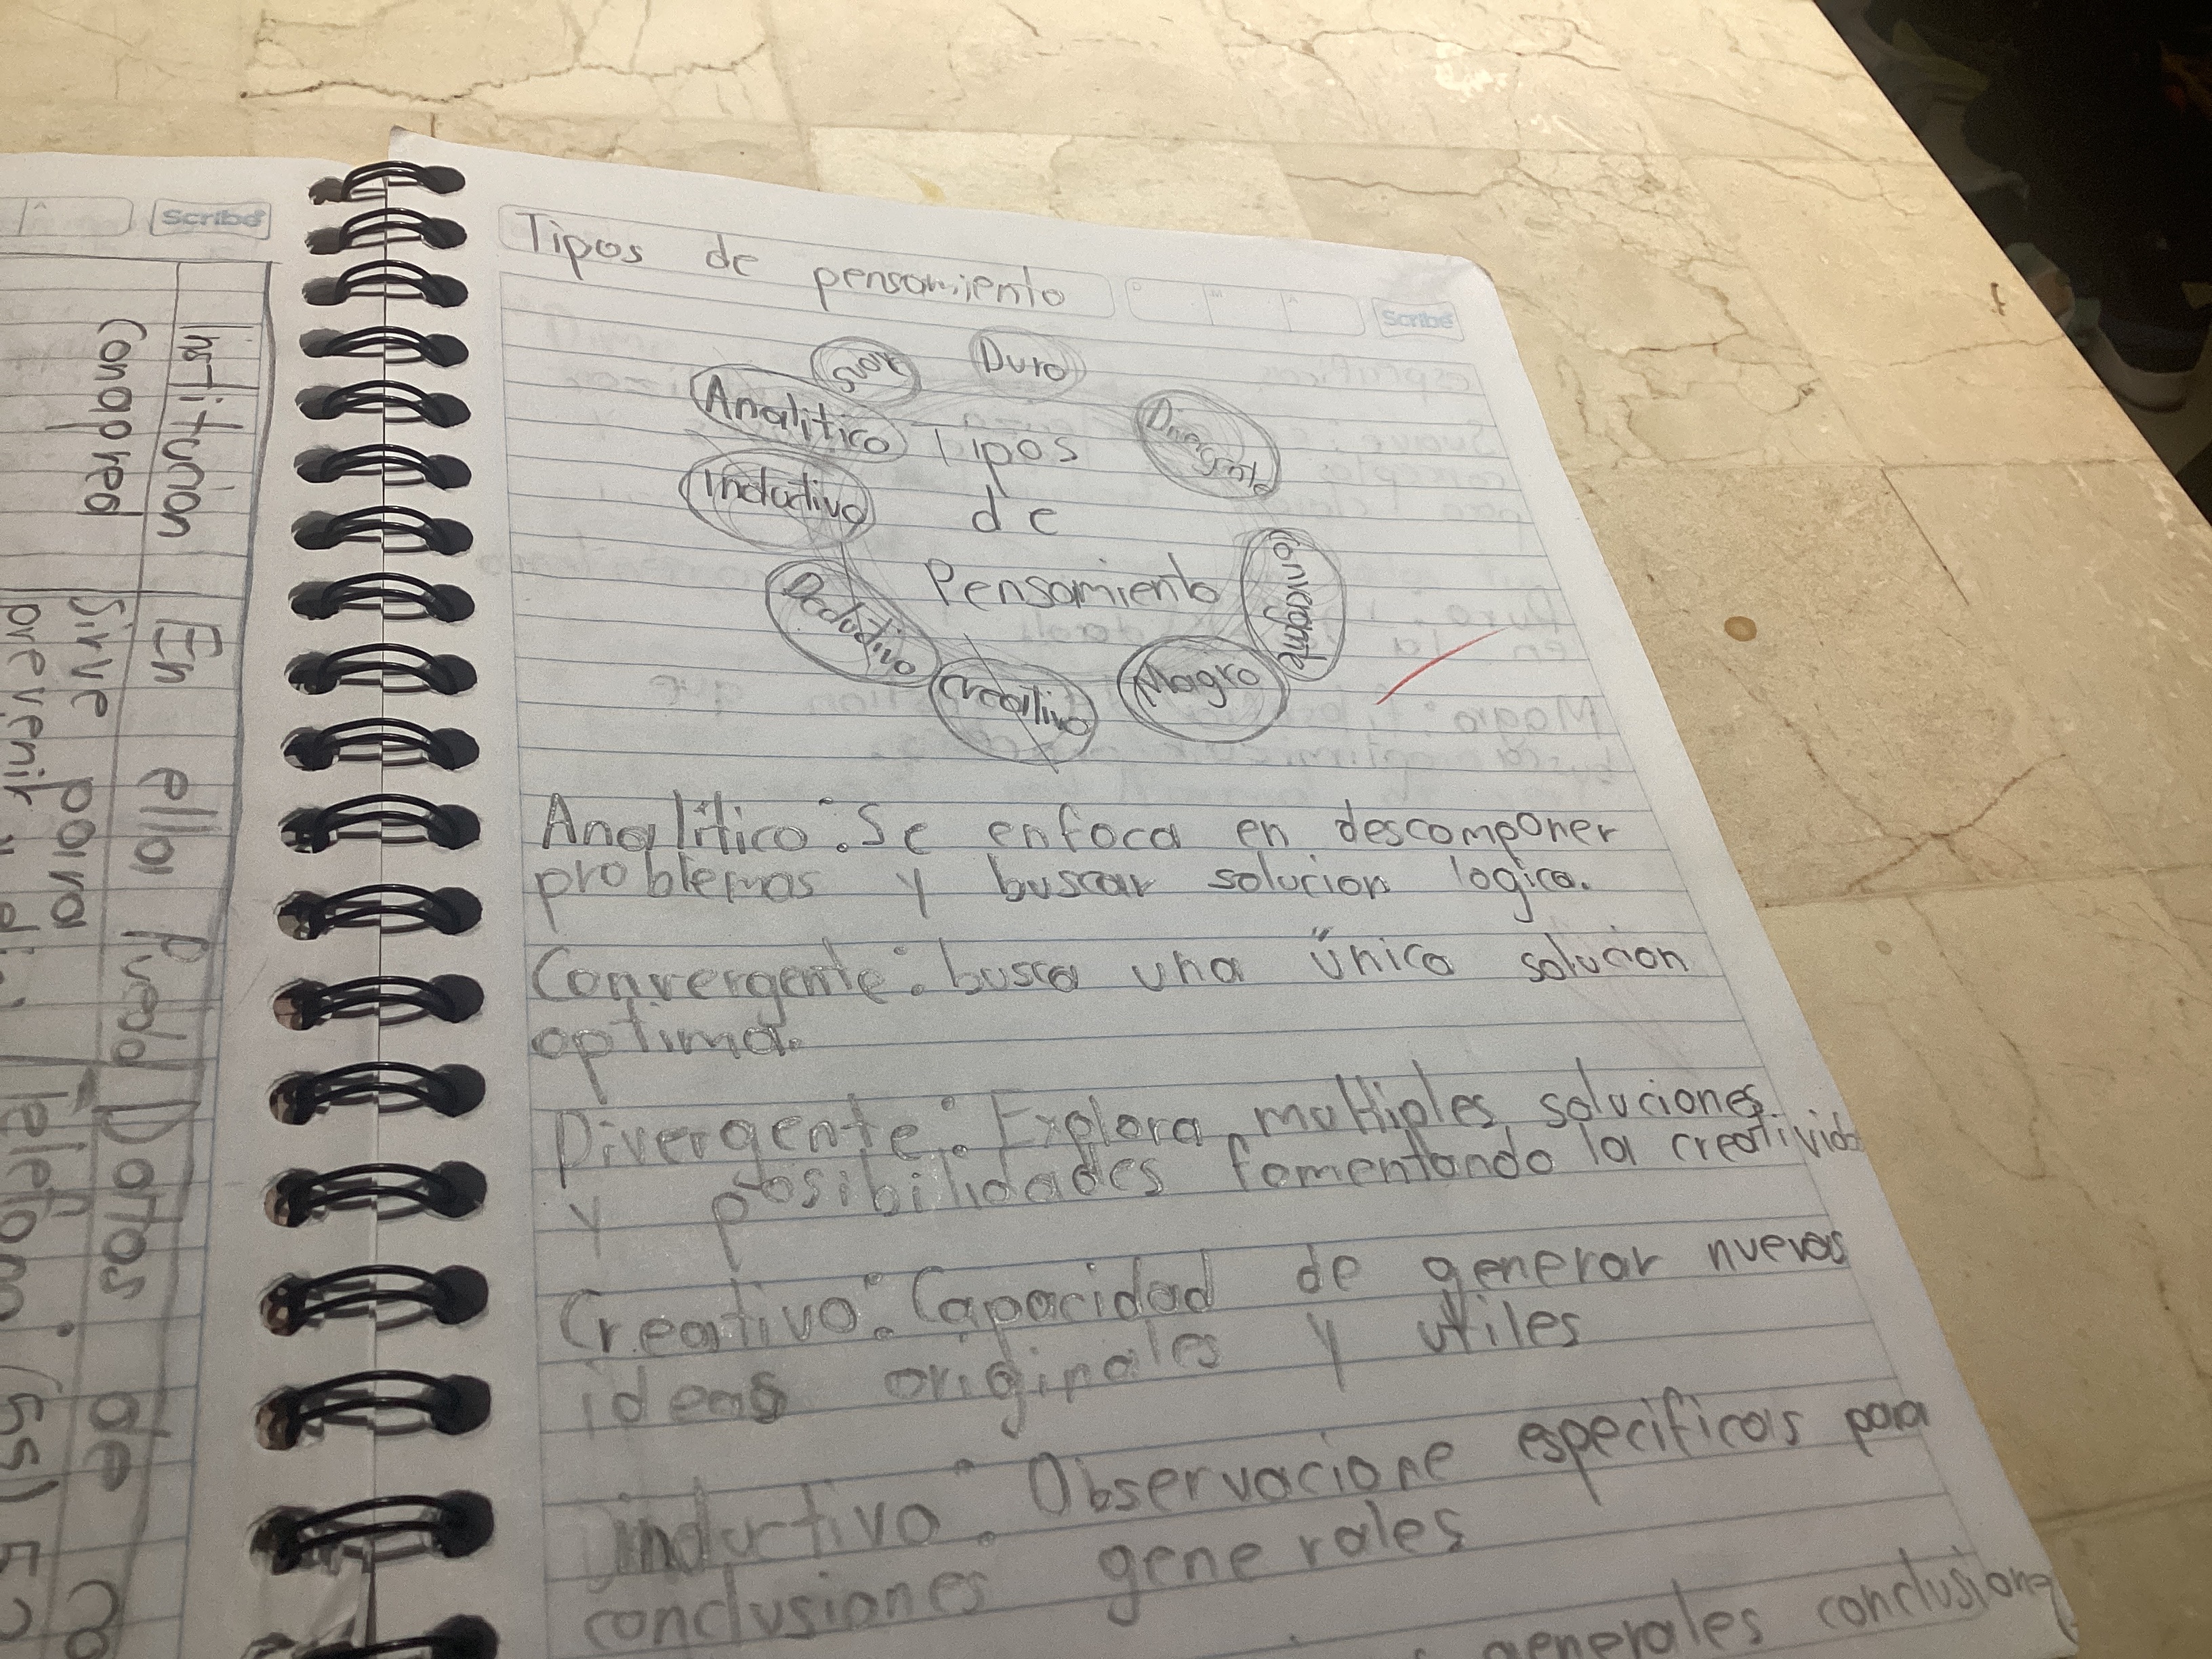 Scribe
Institucion
Conapred
En ella Puedo
Sirve para
prevenir
Datos de
Tipos de pensamiento
Scribe
Suave
Duro
Analitico
Divergente
Tipos
Inductivo
de
Convergente
Pensamiento
Deductivo
Magro
Creativo
Analítico: Se enfoca en descomponer
problemas y buscar solucion logica.
Convergente: busca una única solucion
optima.
Divergente: Explora multiples soluciones
y posibilidades fomentando la creativida
Creativo: Capacidad de generar nuevas
ideas originales y utiles
inductivo: Observacione especificas para
conclusiones generales
generales conclusiones